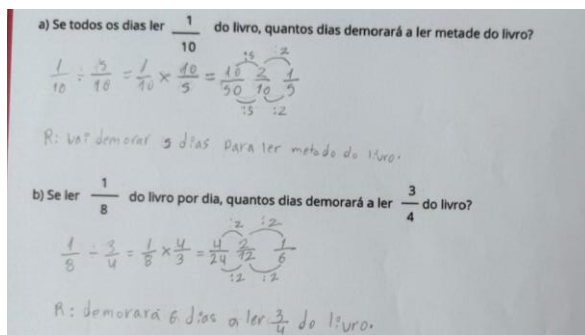 a) Se todos os dias ler 1/10 do livro, quantos dias demorará a ler metade do livro?
1/10 ÷ 5/10 = 1/10 × 10/5 = 10/50 2/10 1/5
:5 :2
:5 :2
R: vai demorar 5 dias para ler metade do livro.
b) Se ler 1/8 do livro por dia, quantos dias demorará a ler 3/4 do livro?
:2 :2
1/8 ÷ 3/4 = 1/8 × 4/3 = 4/24 2/12 1/6
:2 :2
R: demorará 6 dias a ler 3/4 do livro.